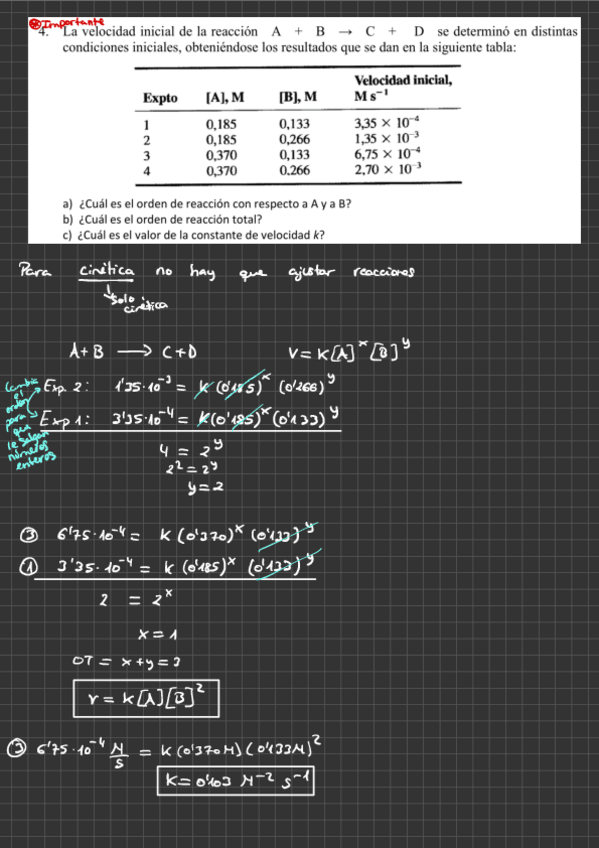 ⊛Importante
4. La velocidad inicial de la reacción A + B → C + D se determinó en distintas
condiciones iniciales, obteniéndose los resultados que se dan en la siguiente tabla:
Velocidad inicial,
Expto [A], M [B], M M s⁻¹
1 0,185 0,133 3,35 × 10⁻⁴
2 0,185 0,266 1,35 × 10⁻³
3 0,370 0,133 6,75 × 10⁻⁴
4 0,370 0.266 2,70 × 10⁻³
a) ¿Cuál es el orden de reacción con respecto a A y a B?
b) ¿Cuál es el orden de reacción total?
c) ¿Cuál es el valor de la constante de velocidad k?
Para cinética no hay que ajustar reacciones
↳ Solo
cinética
A+B ⟶ C+D V=K[A]ˣ[B]ʸ
Cambia
el
orden
para
que
le salgan
números
enteros
Exp. 2: 1'35·10⁻³ = K (0'185)ˣ (0'266)ʸ
Exp 1: 3'35·10⁻⁴ = K(0'185)ˣ(0'133)ʸ
4 = 2ʸ
2² = 2ʸ
y=2
③ 6'75·10⁻⁴ = K (0'370)ˣ (0'133)ʸ
① 3'35·10⁻⁴ = K (0'185)ˣ (0'133)ʸ
2 = 2ˣ
x=1
OT = x+y=3
V=K[A][B]²
③ 6'75·10⁻⁴ M/S = K(0'370M)(0'133M)²
K=0'103 M⁻² s⁻¹